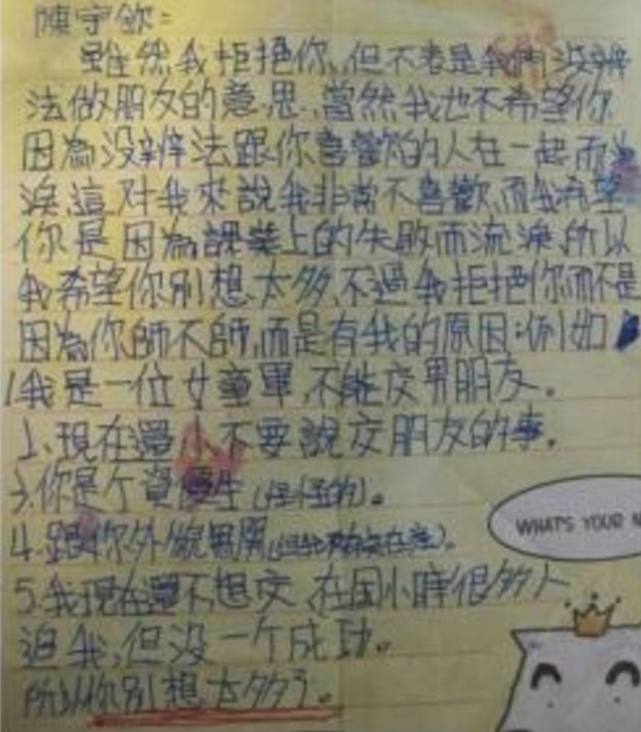 陳宇欽:
雖然我拒絕你,但不者是我們沒辦
法做朋友的意思,當然我也不希望你
因為沒辦法跟你喜歡的人在一起而
淚,這對我來說我非常不喜歡,而我希望
你是因為課業上的失敗而流淚,所以
我希望你別想太多,不過我拒絕你而不是
因為你師不師,而是有我的原因:例如
1.我是一位女童軍,不能交男朋友。
2、現在還小不要說交朋友的事。
3.你是个資優生(怪怪的)。
4.跟你外貌無關
5.我現在還不想交,在国小時很多人
追我,但沒一个成功。
所以你別想太多了。
WHAT'S YOUR N